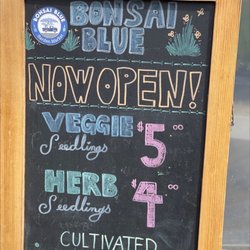 BONSAI BLUE
BONSAI
BLUE
NOW OPEN!
VEGGIE
Seedlings
$5.00
HERB
Seedlings
$4.00
CULTIVATED